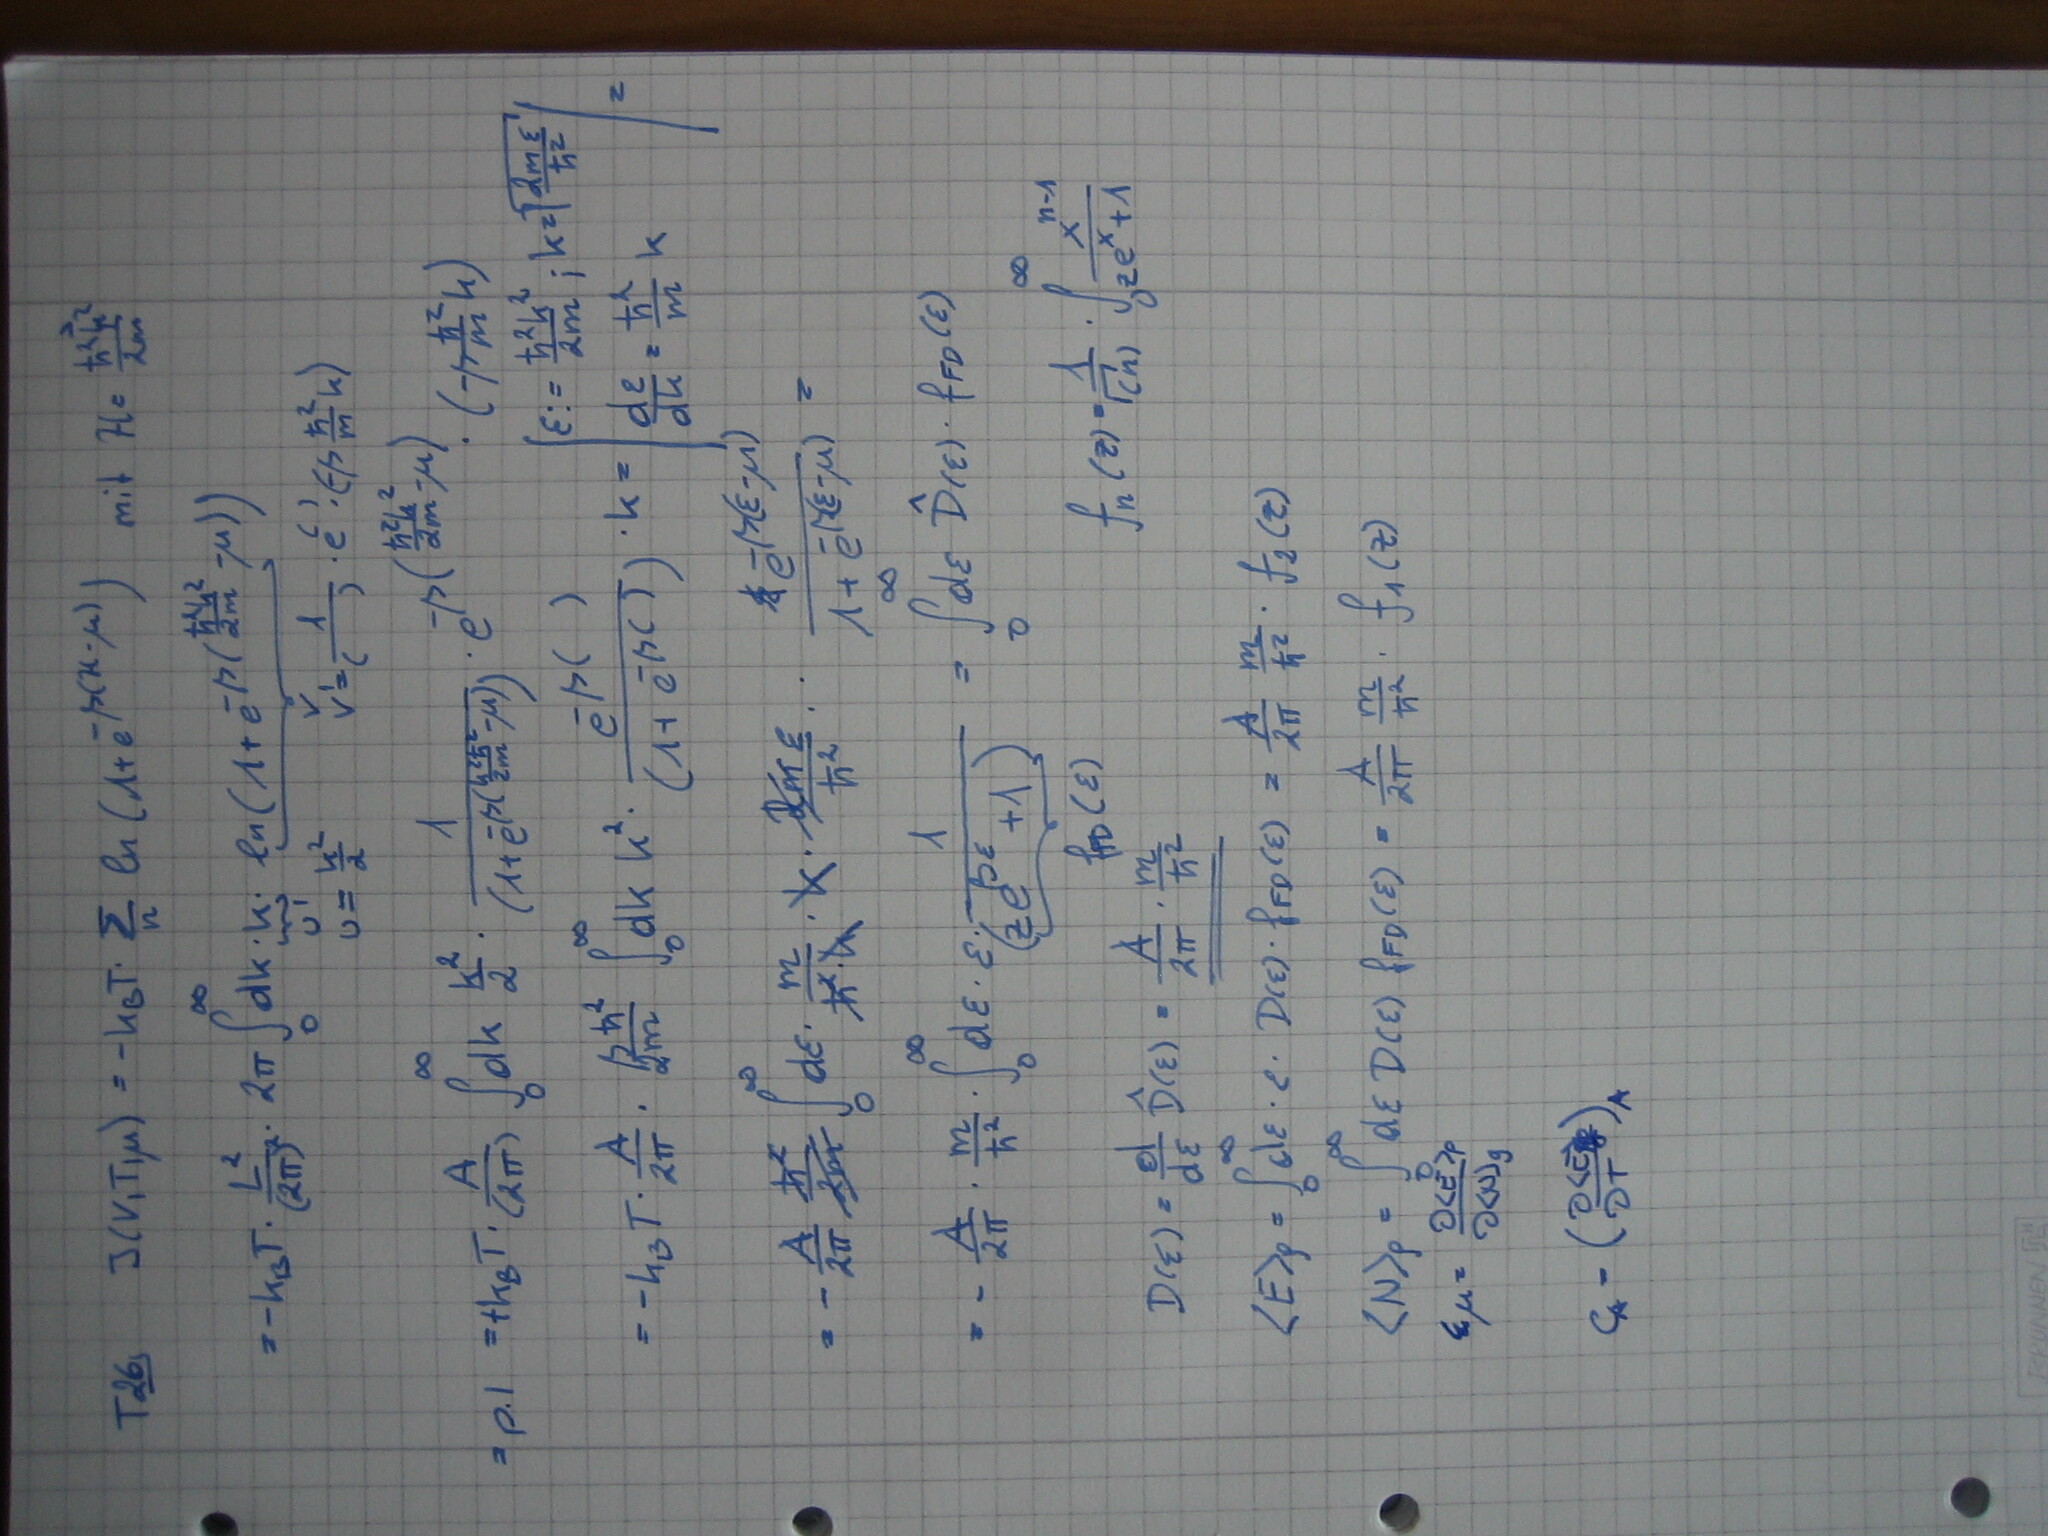 T26) J(V,T,μ) = -k_BT · Σ_k ln(1+e^{-β(H-μ)}) mit H = ħ²k²/2m
= -k_BT · L²/(2π)² · 2π ∫_0^∞ dk · k · ln(1+e^{-β(ħ²k²/2m - μ)})
u' v
u = k²/2 v' = 1/( ) · e^{( )} · (-β ħ²/m k)
= p.I = +k_BT · A/(2π) ∫_0^∞ dk k²/2 · 1/(1+e^{-β(k²ħ²/2m - μ)}) · e^{-β(ħ²k²/2m - μ)} · (-β ħ²/m k)
= -k_BT · A/2π · βħ²/2m ∫_0^∞ dk k² · e^{-β( )}/(1+e^{-β( )}) · k = | ε := ħ²k²/2m ; k = √(2mε/ħ²)
dε/dk = ħ²/m k | =
= - A/2π ħ²/2m ∫_0^∞ dε · m/ħ²·k · k · 2mε/ħ² · e^{-β(ε-μ)}/(1+e^{-β(ε-μ)}) =
= - A/2π · m/ħ² · ∫_0^∞ dε · ε · 1/(ze^{βε}+1) = ∫_0^∞ dε D̂(ε) · f_{FD}(ε)
f_{FD}(ε)
D(ε) = d/dε D̂(ε) = A/2π · m/ħ² f_n(z) = 1/Γ(n) · ∫_0^∞ x^{n-1}/(ze^x+1)
⟨E⟩_ρ = ∫_0^∞ dε · ε · D(ε) · f_{FD}(ε) = A/2π m/ħ² · f_2(z)
⟨N⟩_ρ = ∫_0^∞ dε D(ε) f_{FD}(ε) = A/2π m/ħ² · f_1(z)
μ = ∂⟨E⟩_ρ/∂⟨N⟩_ρ
C_A = (∂⟨E⟩/∂T)_A